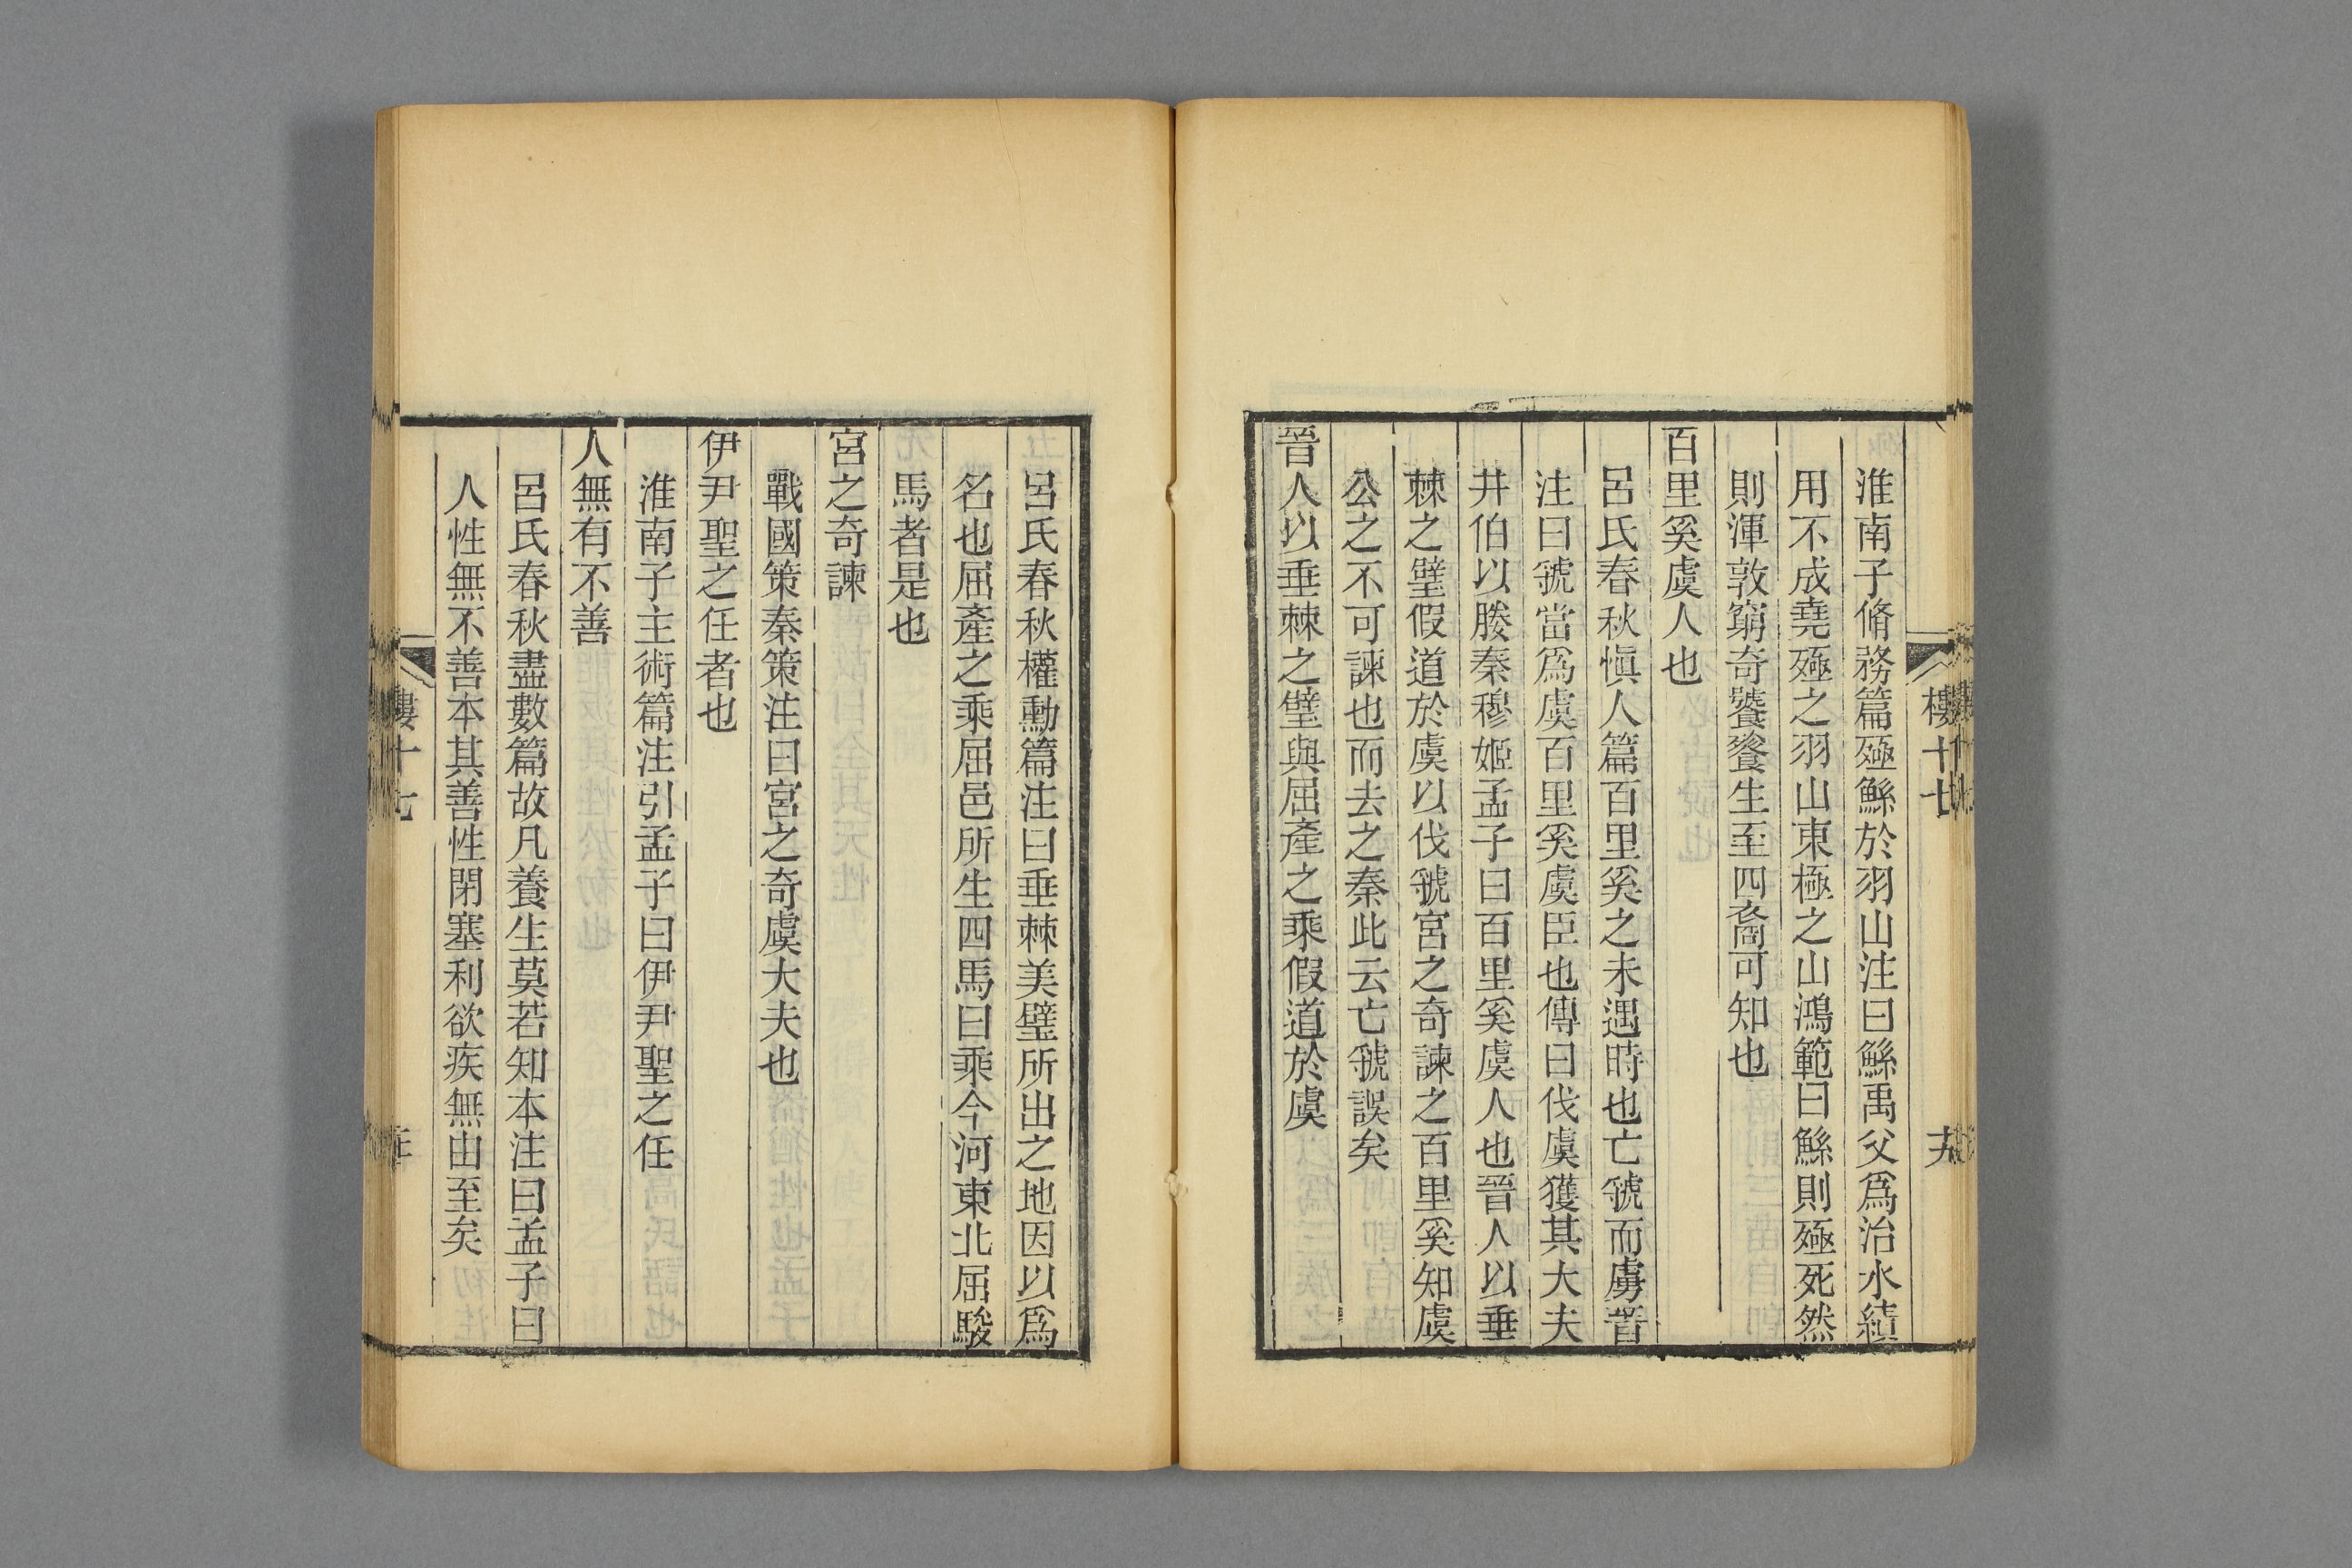 淮南子脩務篇殛鯀於羽山注曰鯀禹父爲治水績
用不成堯殛之羽山東極之山鴻範曰鯀則殛死然
則渾敦窮奇饕餮生至四裔可知也
百里奚虞人也
呂氏春秋愼人篇百里奚之未遇時也亡虢而虜晉
注曰虢當爲虞百里奚虞臣也傳曰伐虞獲其大夫
井伯以媵秦穆姬孟子曰百里奚虞人也晉人以垂
棘之璧假道於虞以伐虢宮之奇諫之百里奚知虞
公之不可諫也而去之秦此云亡虢誤矣
晉人以垂棘之璧與屈產之乘假道於虞
呂氏春秋權勳篇注曰垂棘美璧所出之地因以爲
名也屈產之乘屈邑所生四馬曰乘今河東北屈駿
馬者是也
宮之奇諫
戰國策秦策注曰宮之奇虞大夫也
伊尹聖之任者也
淮南子主術篇注引孟子曰伊尹聖之任
人無有不善
呂氏春秋盡數篇故凡養生莫若知本注曰孟子曰
人性無不善本其善性閉塞利欲疾無由至矣
樓十七